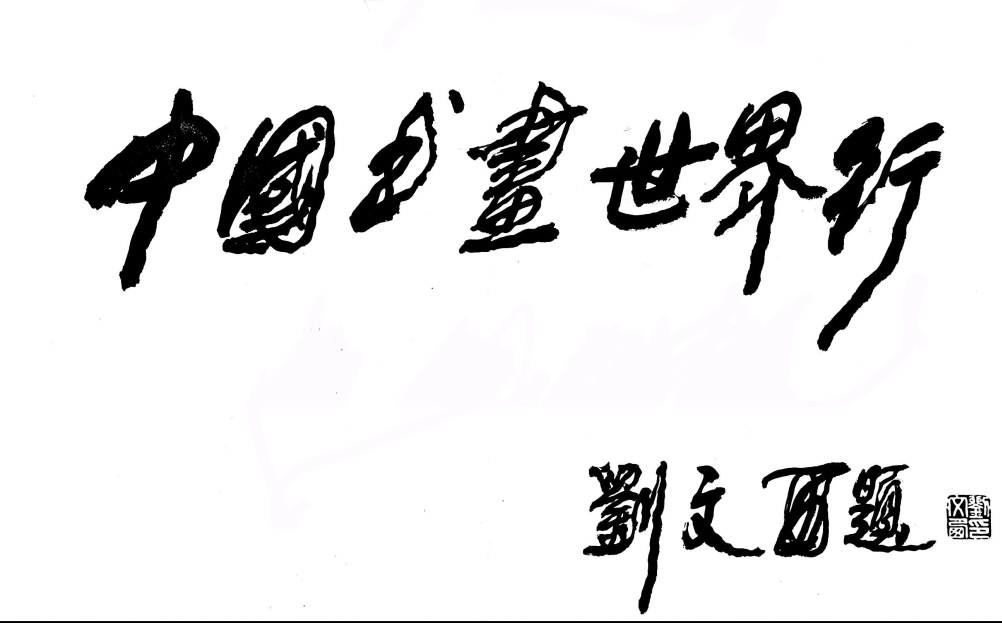 中國书畫世界行
劉文西題